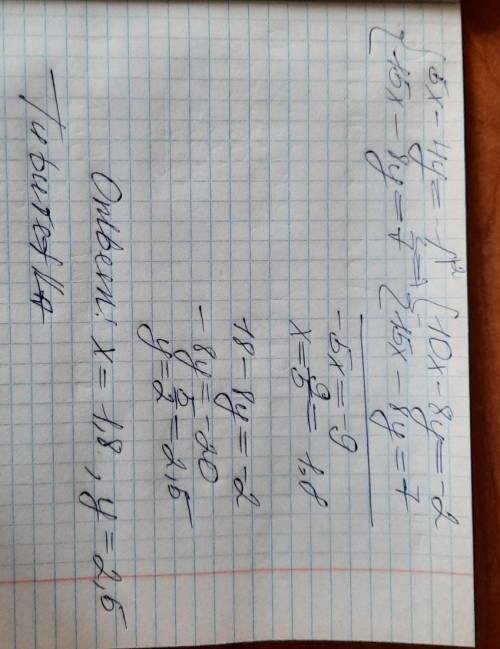 {5x - 4y = -1 |·2 => {10x - 8y = -2
{15x - 8y = 7 {15x - 8y = 7
-5x = -9
x = 9/5 = 1.8
18 - 8y = -2
-8y = -20
y = 5/2 = 2,5
Ответ: x = 1,8 , y = 2,5